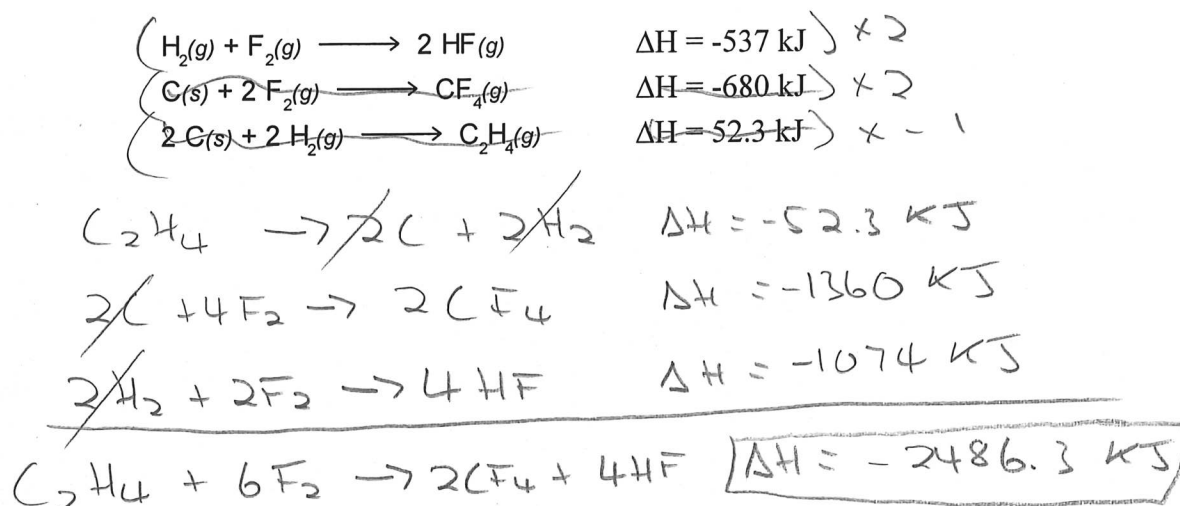 (H₂(g) + F₂(g) ⟶ 2 HF(g) ΔH = -537 kJ) × 2
(C(s) + 2 F₂(g) ⟶ CF₄(g) ΔH = -680 kJ) × 2
(2 C(s) + 2 H₂(g) ⟶ C₂H₄(g) ΔH = 52.3 kJ) × - 1
C₂H₄ → 2C + 2H₂ ΔH = -52.3 KJ
2C + 4F₂ → 2CF₄ ΔH = -1360 KJ
2H₂ + 2F₂ → 4HF ΔH = -1074 KJ
C₂H₄ + 6F₂ → 2CF₄ + 4HF ΔH = -2486.3 KJ